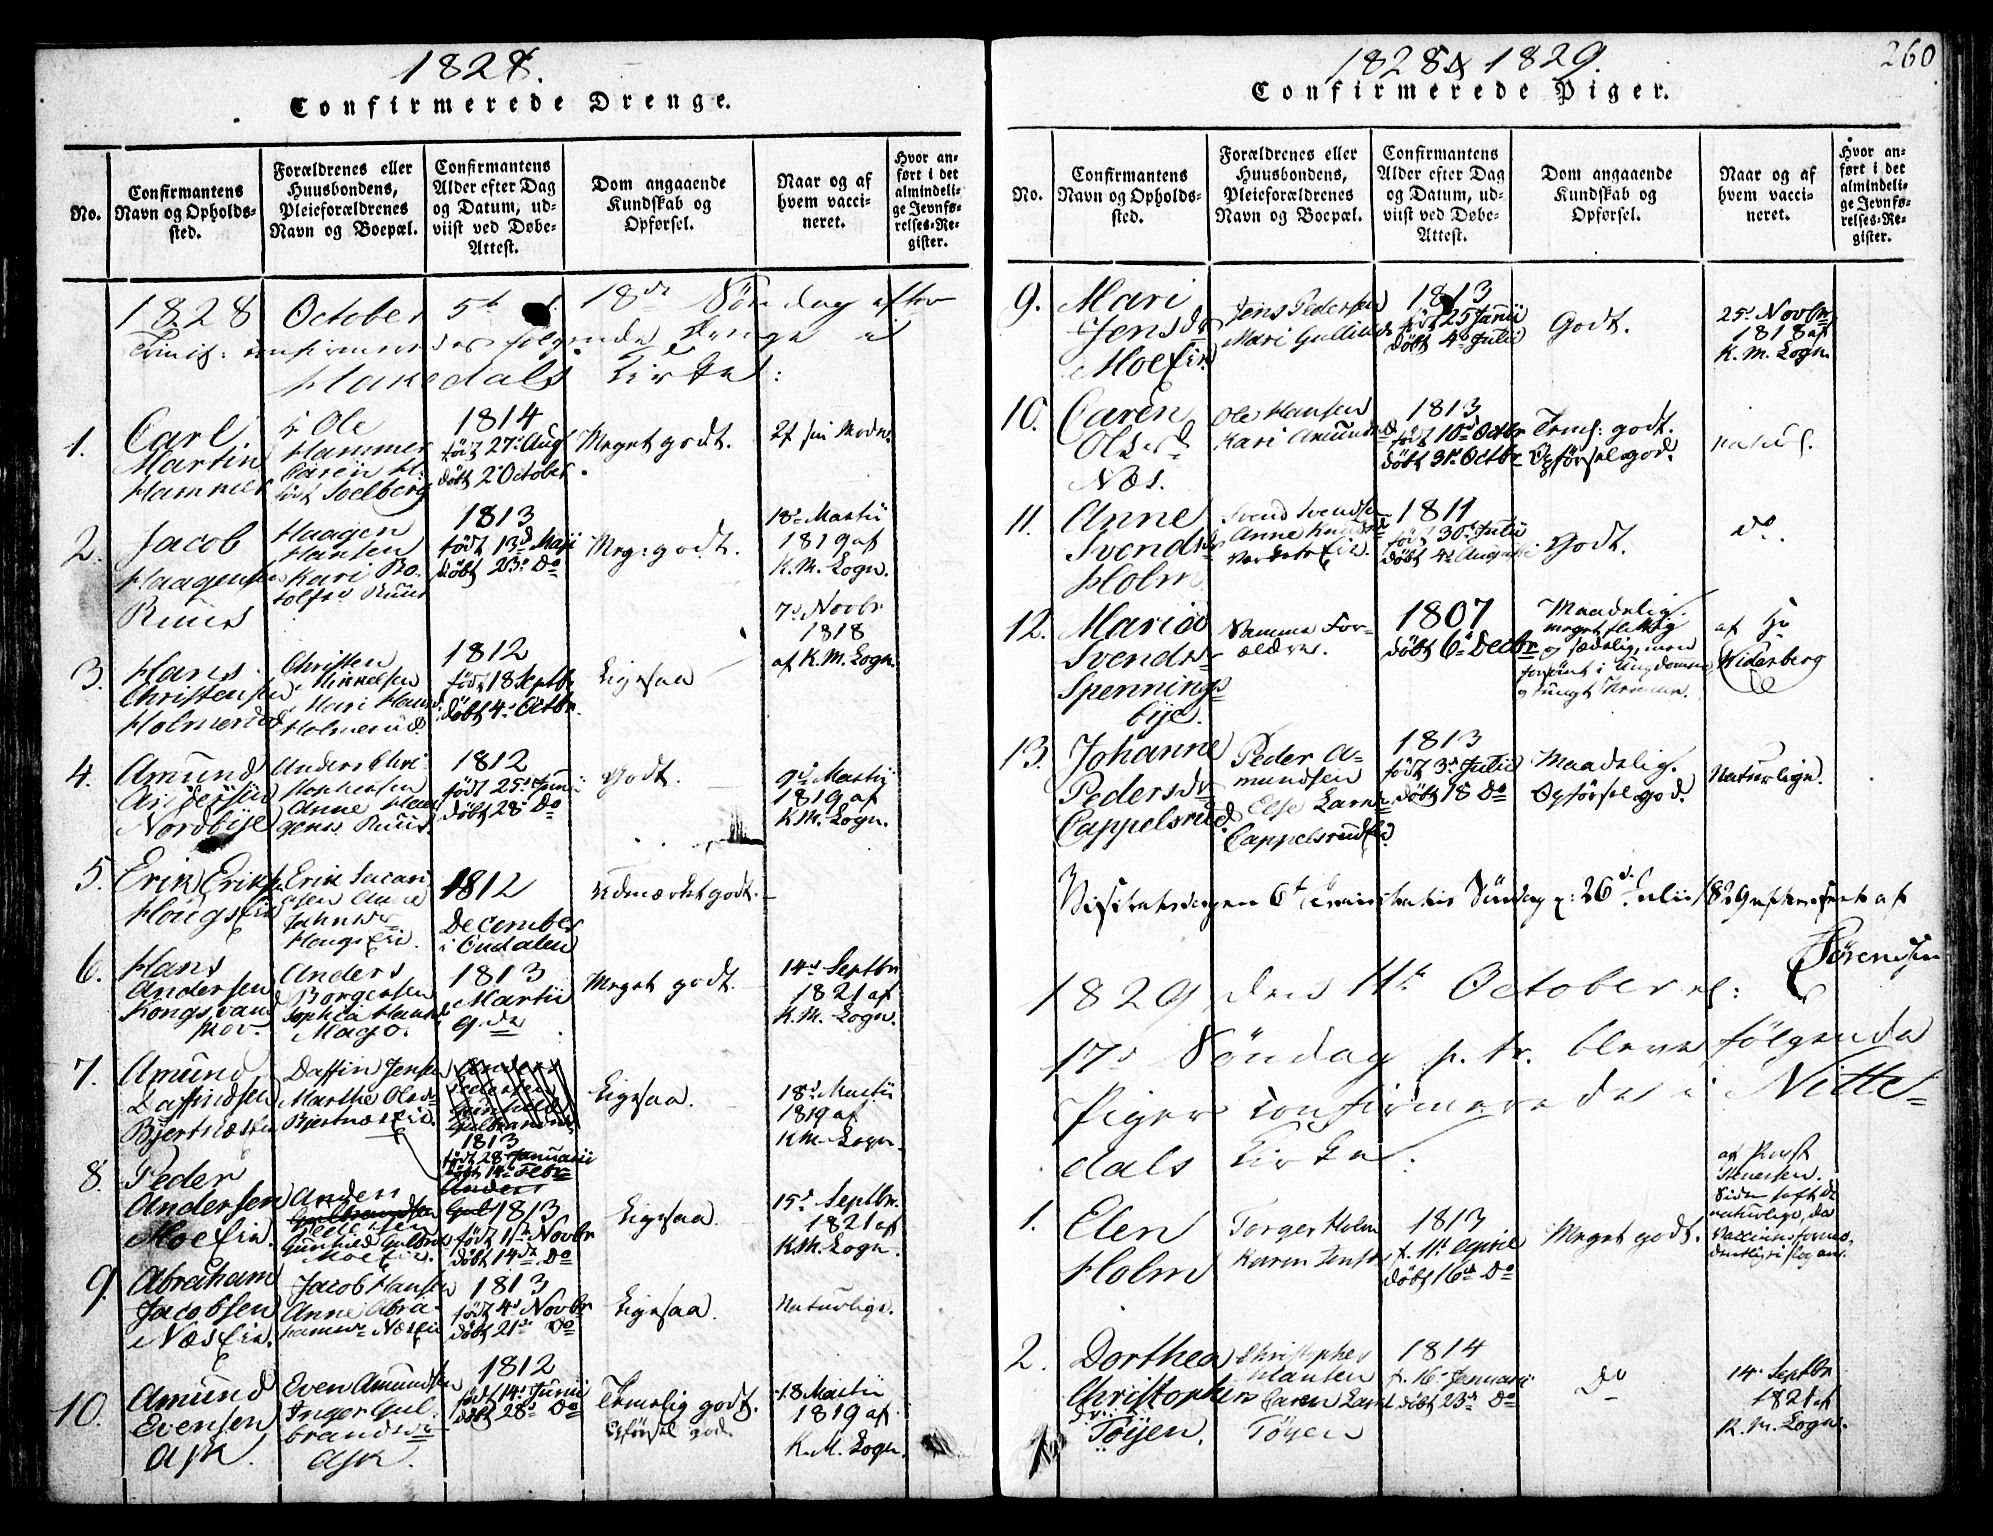 1828.
Confirmerede Drenge.
No.
Confirmantens
Navn og Opholds-
sted.
Forældrenes eller
Huusbondens,
Pleieforældrenes
Navn og Boepæl.
Confirmantens
Alder efter Dag
og Datum, ud-
viist ved Døbe-
Attest.
Dom angaaende
Kundskab og
Opførsel.
Naar og af
hvem vacci-
neret.
Hvor an-
ført i det
almindeli-
ge Jevnfø-
relses-Re-
gister.
1828 October 5te 18de Søndag efter
Trinit: confirmeredes følgende Drenge i
Hakedals Kirke:
1.
Carl
Martin
Hammer
Ole
Hammer
Caren M.
født Solberg
1814
født 27. Aug
døbt 2 October
Meget godt.
2.
Jacob
Haagensen
Ruus
Haagen
Hansen
Kari Bo-
Ruus
1813
født 13d Maji
døbt 23. Do
Meg: godt.
18. Martii
1819 af
K. M. Logn.
3.
Hans
Christensen
Holmerud
Christen
Mikkelsen
Mari Hans
Holmerud
1812
født 18 Septbr
døbt 4. Octbr.
Ligesaa
7. Novbr
1818
af K. M. Logn.
4.
Amund
Andersen
Nordbye
Anders Chri-
stophersen
Anne Haa-
gens Ruus
1812
født 25. Junii
døbt 28. Do
Godt.
9. Martii
1819 af
K. M. Logn.
5.
Erik Eriks.
Hougseie
Erik Sacari-
Hougs Eie.
1812
December
i Oudalen
Udmærket godt.
6.
Hans
Andersen
Kongsvang
skov.
Anders
Borgersen
Sophia Hans
Mago.
1813
Martii
9.de
Meget godt.
14. Septbr
1821 af
K. M. Logn.
7.
Amund
Daffindsen
Bjertnæs Eie
Daffin Jensen
Marthe Olsd.
Bjertnæs Eie.
1813
født 28 Januarii
døbt 14. Febr
Ligesaa.
18. Martii
1819 af
K. M. Logn.
8.
Peder
Andersen
Moe Eie.
Anders
Pedersen
Gunhild Gulbrd
Moe Eie.
1813
født 1ste Novbr
døbt 14de Do
Ligesaa.
15. Septbr.
1821 af
K. M. Logn.
9.
Abraham
Jacobsen
Næs Eie.
Jacob Hansen
Anne Abra-
hamsd. Næs Eie
1813
født 4. Novbr
døbt 21de Do
Ligesaa.
Naturlige.
10.
Amund
Evensen
Ask.
Even Amundsen
Inger Gul-
brandsdr
Ask.
1812
født 14. Junii
døbt 28. Do
Temelig godt.
Opførsel god.
18 Martii
1819 af
K. M. Logn.
1828 & 1829.
260
Confirmerede Piger.
No.
Confirmantens
Navn og Opholds-
sted.
Forældrenes eller
Huusbondens,
Pleieforældrenes
Navn og Boepæl.
Confirmantens
Alder efter Dag
og Datum, ud-
viist ved Døbe-
Attest.
Dom angaaende
Kundskab og
Opførsel.
Naar og af
hvem vacci-
neret.
Hvor an-
ført i det
almindeli-
ge Jevnfø-
relses-Re-
gister.
9.
Mari
Jensdr
Moe Eie
Jens Pedersen
Mari Gulli
1813
født 25 Junii
døbt 4. Julii
Godt.
25. Novbr
1818 af
K. M. Logn.
10.
Caren
Olsdr
Næs.
Ole Hansen
Kari Amundsd
1813
født 10d Octbr
døbt 31. Octbr
Tems: godt.
Opførsel god.
naturl.
11.
Anne
Svendsdr
Holm
Svend Svendsen
Anne Knudsd
Eie.
1811
født 30. Julii
døbt 4. Augusti
Godt.
Do.
12.
Maria
Svendsdr
Spennings-
bye.
Samme For-
ældre.
1807
døbt 6. Decbr
Maadelig.
meget flittig
og sædelig, men
forsømt i Ungdommen
og tungt Nemme.
af Hr
Widerberg
13.
Johanne
Pedersdr
Cappelsrud.
Peder A-
mundsen
Else Lars
Cappelsrud Eie
1813
født 3. Julii
døbt 18 Do
Maadelig.
Opførsel god.
Naturlige.
Visitatsdagen 6te Trinitatis Søndag d: 26d Julii 1829 efterseet af
Sørenssen
1829 den 11te October el:
17d Søndag p. tr. bleve følgende
Piger confirmerede i Nitte-
dals Kirke:
1.
Elen
Holm
Torger Holm
Karen Jensdr
1813
f. 11te April
døbt 16de Do
Meget godt.
af Præst
Stenersen.
Siden haft de
naturlige, da
2.
Dorthea
Christophers
Tøyen.
Christopher
Hansen
Caren Lars
Tøyen
1814
f. 16. Januarii
døbt 23d Do
Do
14. Septbr
1821 af
K. M. Logn.